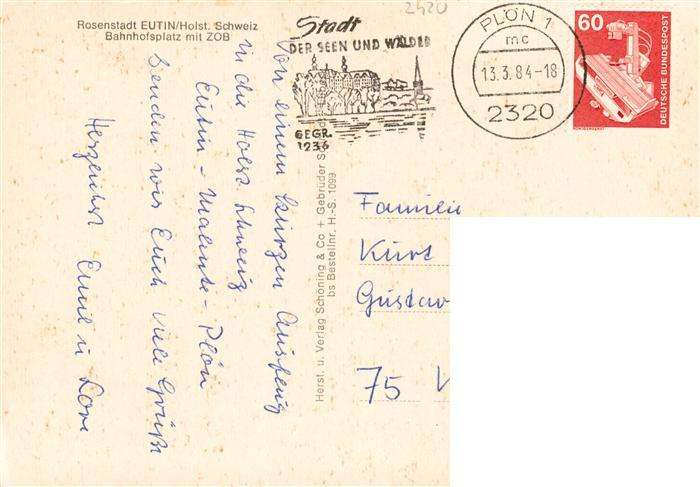 2420
Rosenstadt EUTIN/Holst. Schweiz
Bahnhofsplatz mit ZOB
Stadt
DER SEEN UND WÄLDER
GEGR.
1236
PLÖN 1
mc
13.3.84-18
2320
60
DEUTSCHE BUNDESPOST
Von einem kurzen Ausflug
in die Holst. Schweiz
Eutin - Malente - Plön
senden wir Euch viele Grüße
Herzlichst Emil u Lore
Herst. u. Verlag Schöning & Co + Gebrüder S
bs Bestellnr. H.-S. 1099
Familie
Kurt
Gustav
75